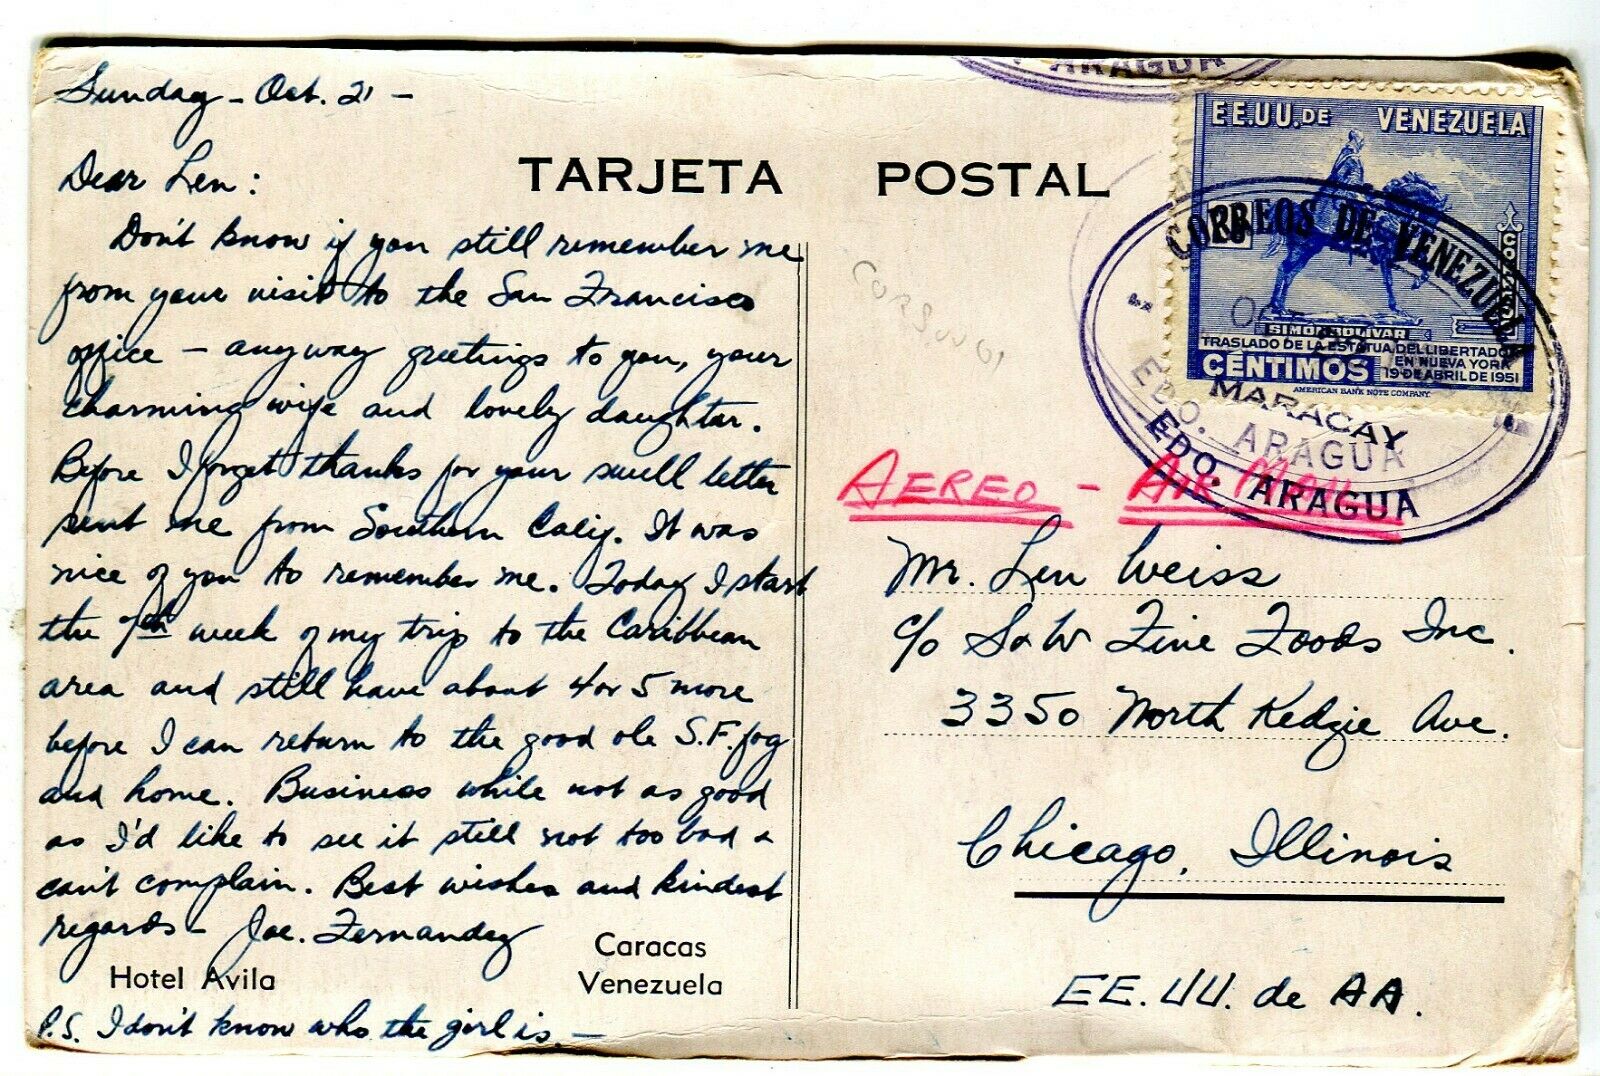 Sunday - Oct. 21 -
Dear Len:
Don't know if you still remember me
from your visit to the San Francisco
office - anyway greetings to you, your
charming wife and lovely daughter.
Before I forget thanks for your swell letter
sent me from Southern Calif. It was
nice of you to remember me. Today I start
the 7th week of my trip to the Caribbean
area and still have about 4 or 5 more
before I can return to the good ole S.F. fog
and home. Business while not as good
as I'd like to see it still not too bad &
can't complain. Best wishes and kindest
regards - Joe. Fernandez
Hotel Avila
Caracas
Venezuela
P.S. I don't know who the girl is. -
TARJETA POSTAL
ARAGUA
EE.UU. DE VENEZUELA
SIMON BOLIVAR
TRASLADO DE LA ESTATUA DEL LIBERTADOR
EN NUEVA YORK
19 DE ABRIL DE 1951
CÉNTIMOS
AMERICAN BANK NOTE COMPANY
CORREOS DE VENEZUELA
MARACAY
EDO. ARAGUA
EDO. ARAGUA
AEREO - AIR MAIL
Mr. Len Weiss
c/o S & W Fine Foods Inc.
3350 North Kedzie Ave.
Chicago, Illinois
EE. UU. de AA.